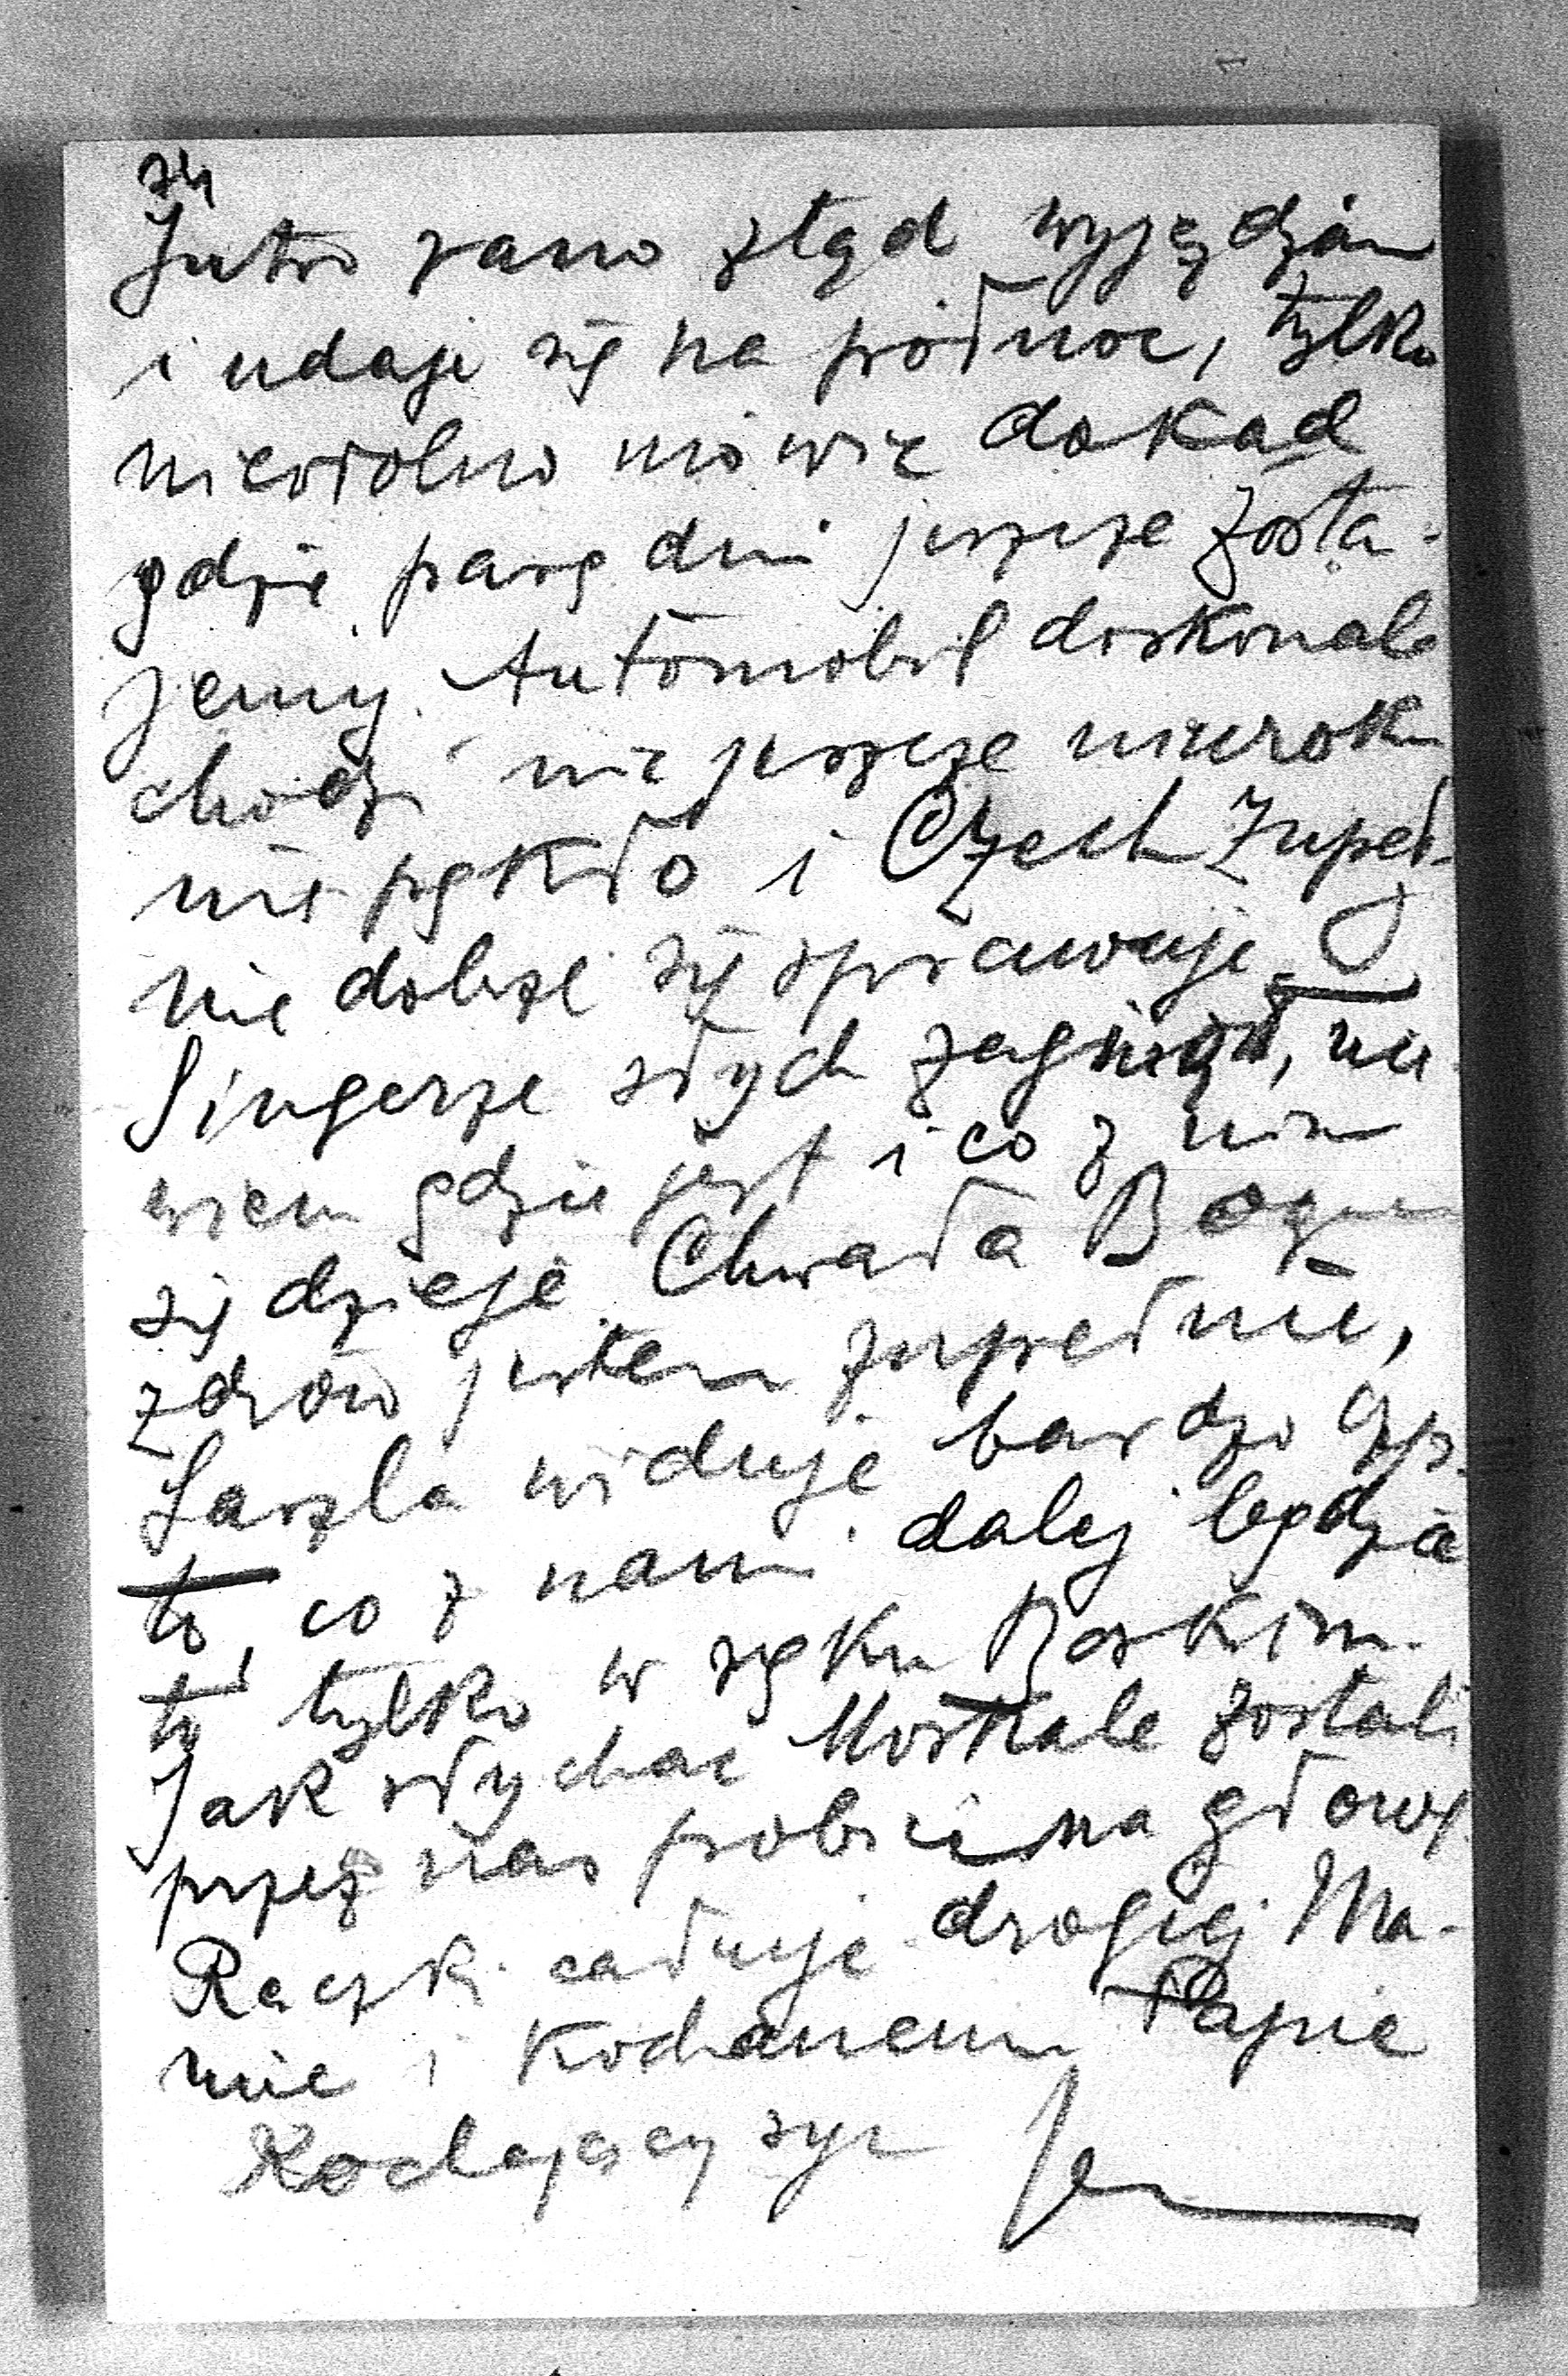 Jutro rano ztąd wyjężdżam
i udaje się na północ, tylko
niewolno mówić dokąd
gdzie parę dni jeszcze zosta-
jemy. Automobil doskonale
chodzi nic jeszcze mu
nie pękło i Czech zupeł-
nie dobrze się sprawuje. O
Singerze słych zaginął, nie
wiem gdzie jest i co z nim
się dzieje. Chwała Bogu
zdrów jestem zupełnie,
Laszla widuje bardzo częs-
to, co z nami dalej będzie
to tylko w ręku Boskim.
Jak słychać Moskale zostali
przez nas pobici na głowę.
Rączki całuje drogiej Ma-
mie i Kochanemu Papie
Kochający syn